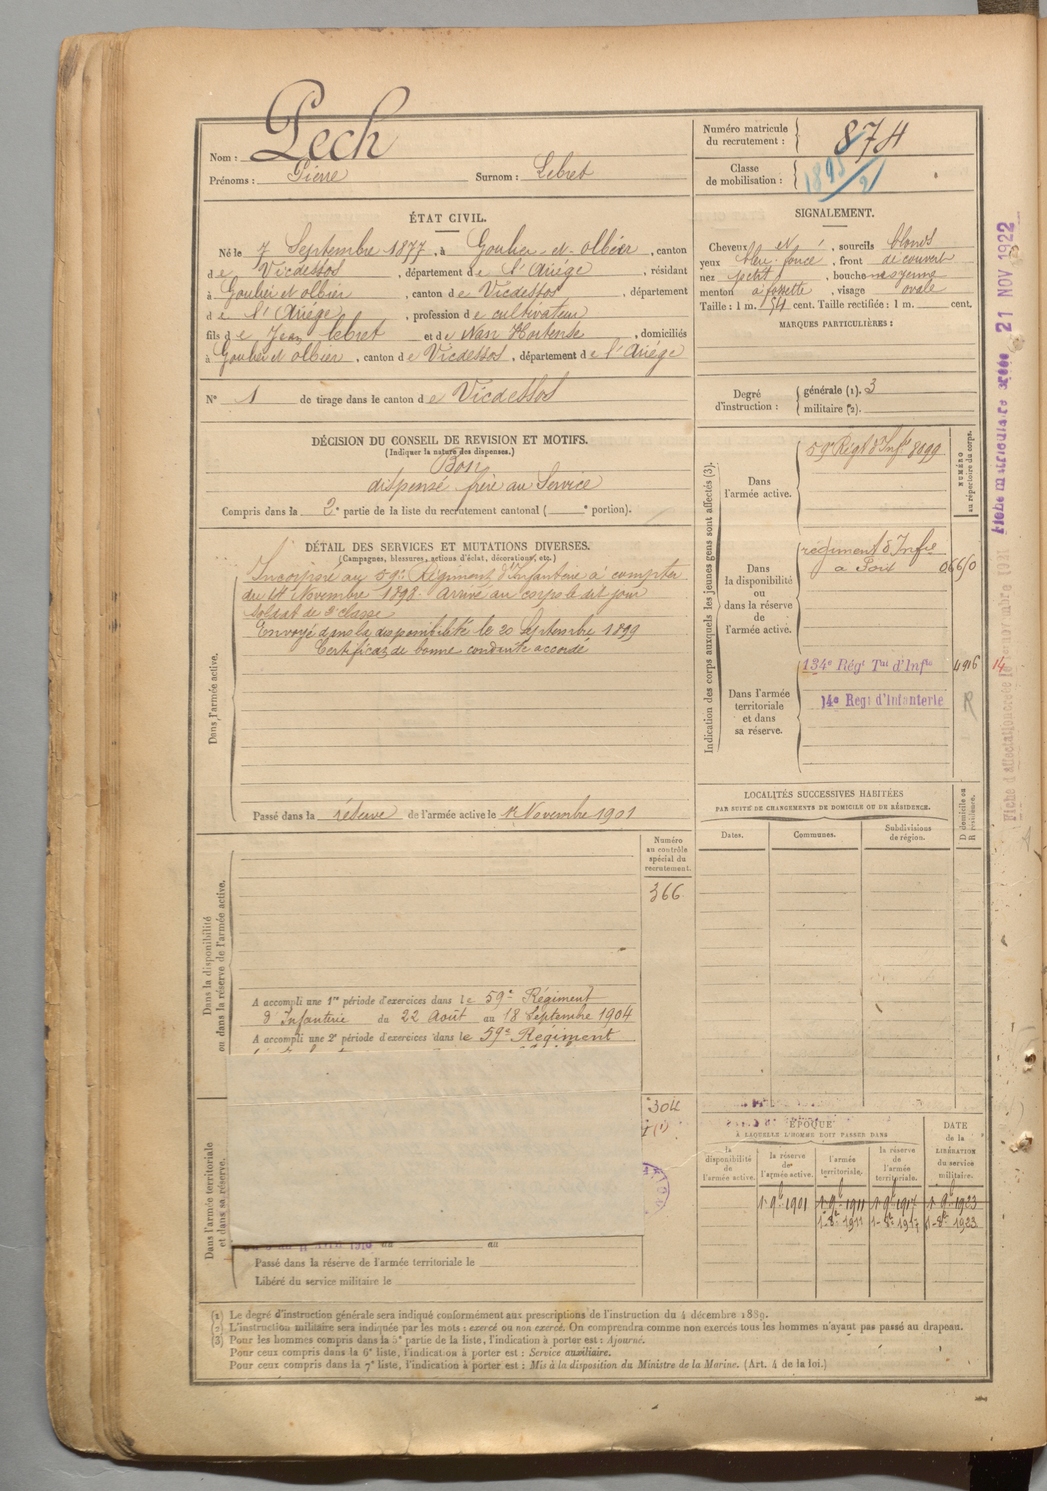 Nom : Pech
Prénoms : Pierre Surnom : Lebret
Numéro matricule
du recrutement : 874
Classe
de mobilisation :
ÉTAT CIVIL.
Né le 7 Septembre 1877, à Goulier-et-Olbier, canton
de Vicdessos, département de l'Ariège, résidant
à Goulier et olbier, canton de Vicdessos, département
de l'Ariège, profession de cultivateur
fils de Jean Lebret et de Nan Hortense, domiciliés
à Goulier et olbier, canton de Vicdessos, département de l'Ariége
N° 1 de tirage dans le canton de Vicdessos
SIGNALEMENT.
Cheveux et, sourcils blonds
yeux bleu-foncé, front découvert
nez petit, bouche moyenne
menton à fossette, visage ovale
Taille : 1 m. 54 cent. Taille rectifiée : 1 m. cent.
MARQUES PARTICULIÈRES :
Degré
d'instruction :
générale (1). 3
militaire (2).
DÉCISION DU CONSEIL DE REVISION ET MOTIFS.
(Indiquer la nature des dispenses.)
Bon
dispensé frère au Service
Compris dans la 2e partie de la liste du recrutement cantonal ( e portion).
DÉTAIL DES SERVICES ET MUTATIONS DIVERSES.
(Campagnes, blessures, actions d'éclat, décorations, etc.)
Dans l'armée active.
Incorporé au 59e Régiment d'Infanterie à compter
du 14 Novembre 1898. Arrivé au corps le dit jour
soldat de 2e classe
Envoyé dans la disponibilité le 20 Septembre 1899
Certificat de bonne conduite accordé
Passé dans la réserve de l'armée active le 1er Novembre 1901
Indication des corps auxquels les jeunes gens sont affectés (3).
NUMÉRO
au répertoire du corps.
Dans
l'armée active.
59e Régt d'Infie 8099
Dans
la disponibilité
ou
dans la réserve
de
l'armée active.
régiment d'Infie
a Foix 06610
Dans l'armée
territoriale
et dans
sa réserve.
134e Régt Tal d'Infie 4916 14
14e Regt d'Infanterie R
Fiche matriculaire créée 21 NOV 1922
LOCALITÉS SUCCESSIVES HABITÉES
PAR SUITE DE CHANGEMENTS DE DOMICILE OU DE RÉSIDENCE.
Dates. Communes. Subdivisions
de région.
D domicile ou
R résidence.
Numéro
au contrôle
spécial du
recrutement.
366
Dans la disponibilité
ou dans la réserve de l'armée active.
A accompli une 1re période d'exercices dans le 59e Régiment
d'Infanterie du 22 Août au 18 Septembre 1904
A accompli une 2e période d'exercices dans le 59e Régiment
Dans l'armée territoriale
et dans sa réserve.
304
au
Passé dans la réserve de l'armée territoriale le
Libéré du service militaire le
ÉPOQUE
À LAQUELLE L'HOMME DOIT PASSER DANS
la
disponibilité
de
l'armée active.
la réserve
de
l'armée active.
l'armée
territoriale.
la réserve
de
l'armée
territoriale.
DATE
de la
LIBÉRATION
du service
militaire.
1er 9bre 1901 1er 9bre 1911 1er 9bre 1917 1er 9bre 1923
1er 8bre 1911 1er 8bre 1917 1er 8bre 1923
(1) Le degré d'instruction générale sera indiqué conformément aux prescriptions de l'instruction du 4 décembre 1889.
(2) L'instruction militaire sera indiquée par les mots : exercé ou non exercé. On comprendra comme non exercés tous les hommes n'ayant pas passé au drapeau.
(3) Pour les hommes compris dans la 5e partie de la liste, l'indication à porter est : Ajourné.
Pour ceux compris dans la 6e liste, l'indication à porter est : Service auxiliaire.
Pour ceux compris dans la 7e liste, l'indication à porter est : Mis à la disposition du Ministre de la Marine. (Art. 4 de la loi.)